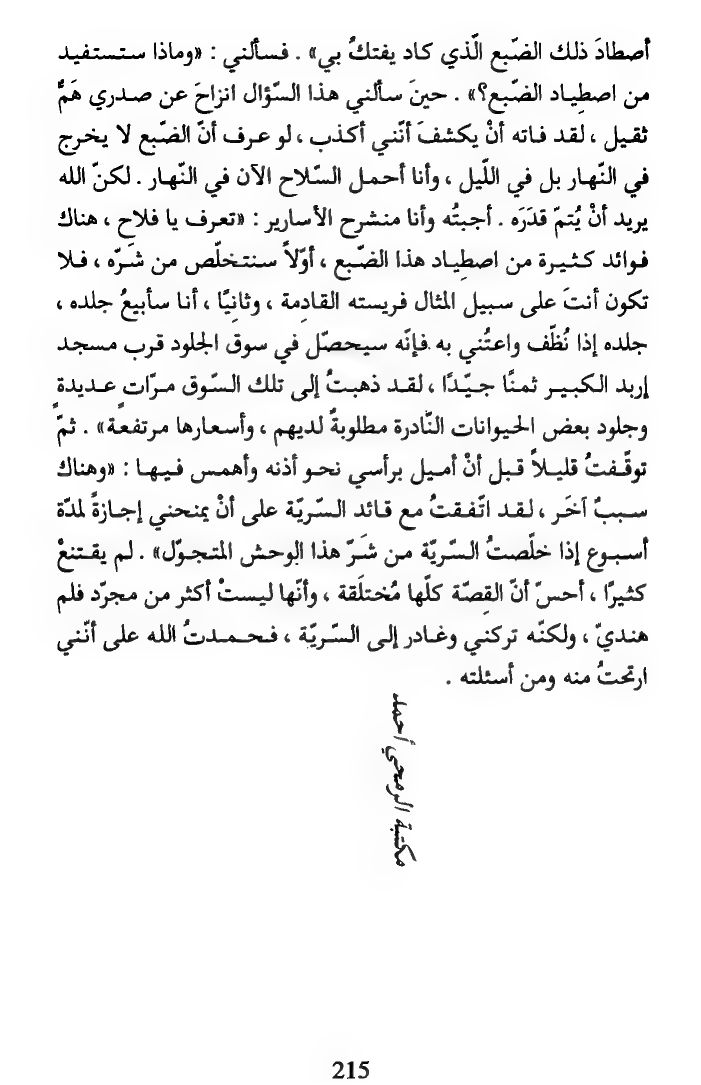 أصطادَ ذلك الضّبع الّذي كاد يفتكُ بي» . فسألني : «وماذا ستستفيد
من اصطِياد الضّبع؟» . حينَ سألني هذا السّؤال انزاحَ عن صدري هَمٌّ
ثقيل ، لقد فاته أنْ يكشفَ أنّني أكذب ، لو عرف أنّ الضّبع لا يخرج
في النّهار بل في اللّيل ، وأنا أحمل السّلاح الآن في النّهار . لكنّ الله
يريد أنْ يُتمّ قدَرَه . أجبتُه وأنا منشرح الأسارير : «تعرف يا فلاح ، هناك
فوائد كثيرة من اصطِياد هذا الضّبع ، أوّلاً سنتخلّص من شَرّه ، فلا
تكون أنتَ على سبيل المثال فريسته القادِمة ، وثانيًا ، أنا سأبيعُ جلده ،
جلده إذا نُظّف واعتُني به فإنّه سيحصّل في سوق الجلود قرب مسجد
إربد الكبير ثمنًا جيّدًا ، لقد ذهبتُ إلى تلك السّوق مرّاتٍ عديدةٍ
وجلود بعض الحيوانات النّادرة مطلوبةٌ لديهم ، وأسعارها مرتفعة» . ثمّ
توقّفتُ قليلاً قبل أنْ أميل برأسي نحو أذنه وأهمس فيها : «وهناك
سببٌ آخَر ، لقد اتّفقتُ مع قائد السّريّة على أنْ يمنحني إجازةً لمدّة
أسبوع إذا خلّصتُ السّريّة من شَرّ هذا الوحش المتجوّل» . لم يقتنعْ
كثيرًا ، أحسّ أنّ القِصّة كلّها مُختلَقة ، وأنّها ليستْ أكثر من مجرّد فلم
هنديّ ، ولكنّه تركني وغادر إلى السّريّة ، فحمدتُ الله على أنّني
ارتحتُ منه ومن أسئلته .
مكتبة الرمحي أحمد
215